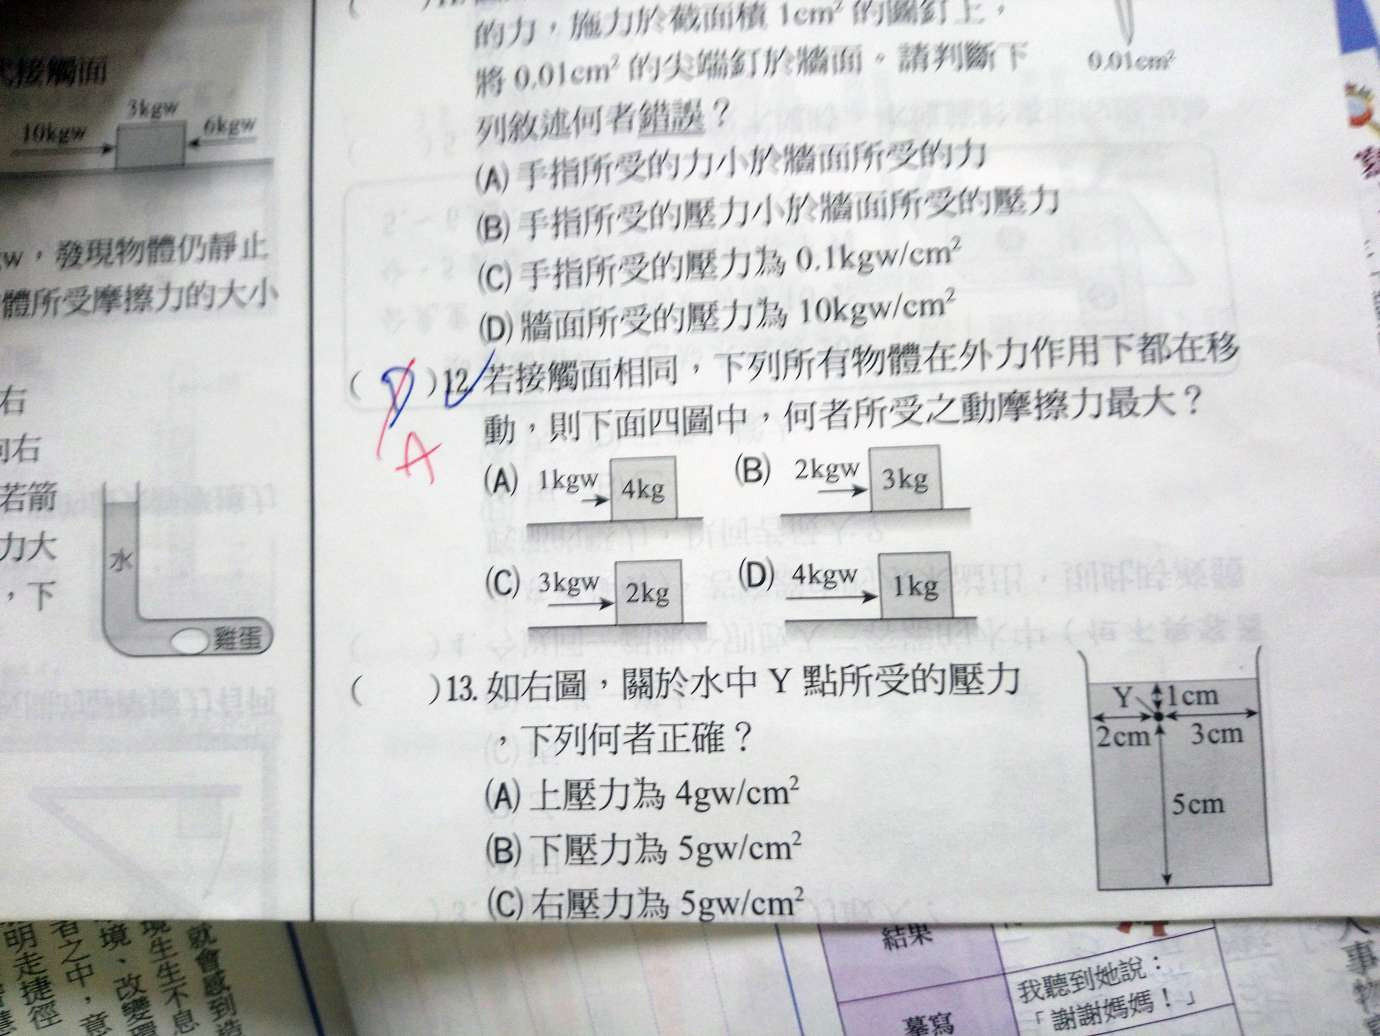 式接觸面
3kgw
10kgw
6kgw
gw，發現物體仍靜止
體所受摩擦力的大小
右
向右
若箭
力大
，下
水
雞蛋
的力，施力於截面積 1cm² 的圖釘上，
將 0.01cm² 的尖端釘於牆面。請判斷下
列敘述何者錯誤？
0.01cm²
(A) 手指所受的力小於牆面所受的力
(B) 手指所受的壓力小於牆面所受的壓力
(C) 手指所受的壓力為 0.1kgw/cm²
(D) 牆面所受的壓力為 10kgw/cm²
( D )12. 若接觸面相同，下列所有物體在外力作用下都在移
A
動，則下面四圖中，何者所受之動摩擦力最大？
(A) 1kgw 4kg (B) 2kgw 3kg
(C) 3kgw 2kg (D) 4kgw 1kg
( )13. 如右圖，關於水中 Y 點所受的壓力
，下列何者正確？
(A) 上壓力為 4gw/cm²
(B) 下壓力為 5gw/cm²
(C) 右壓力為 5gw/cm²
Y 1cm
2cm 3cm
5cm
結果
摹寫
我聽到她說：
「謝謝媽媽！」
就會感到
境生生不息
境、改變環
者之中，意
明走捷徑
人事物